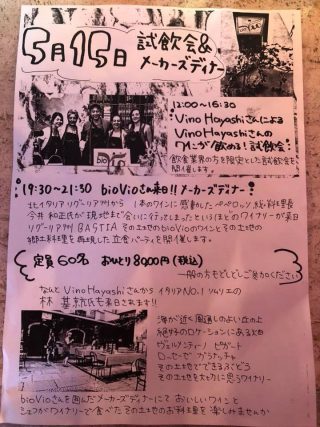 5月15日 試飲会&
メーカーズディナー
12:00〜16:30
Vino Hayashiさんによる
Vino Hayashiさんの
ワインが飲める!試飲会
飲食業界の方を限定とした試飲会を
開催します。
bioVio
19:30〜21:30 bioVioさん来日!!メーカーズディナー!
北イタリア リグーリア州から 1本のワインに感動したペペロッソ 総料理長
今井 和正氏が 現地まで会いに行ってしまったというほどのワイナリーが来日
リグーリア州 BASTIA その土地のbioVioのワインとその土地の
郷土料理を再現した 立食パーティを開催します。
定員60名 おひとり8000円(税込)
一般の方もどしどしご参加ください
なんと VinoHayashiさんから イタリアNO.1 ソムリエの
林 基就氏も来日されます!!
海が近く風通しのよい丘の上
絶好のロケーションにある畑
ヴェルメンティーノ ピガート
ローセーゼ グラナッチャ
その土地でできるぶどう
その土地を大切に思うワイナリー
bioVioさんを囲んだメーカーズディナーにて おいしいワインと
シェフがワイナリーで食べた その土地のお料理を 楽しみませんか